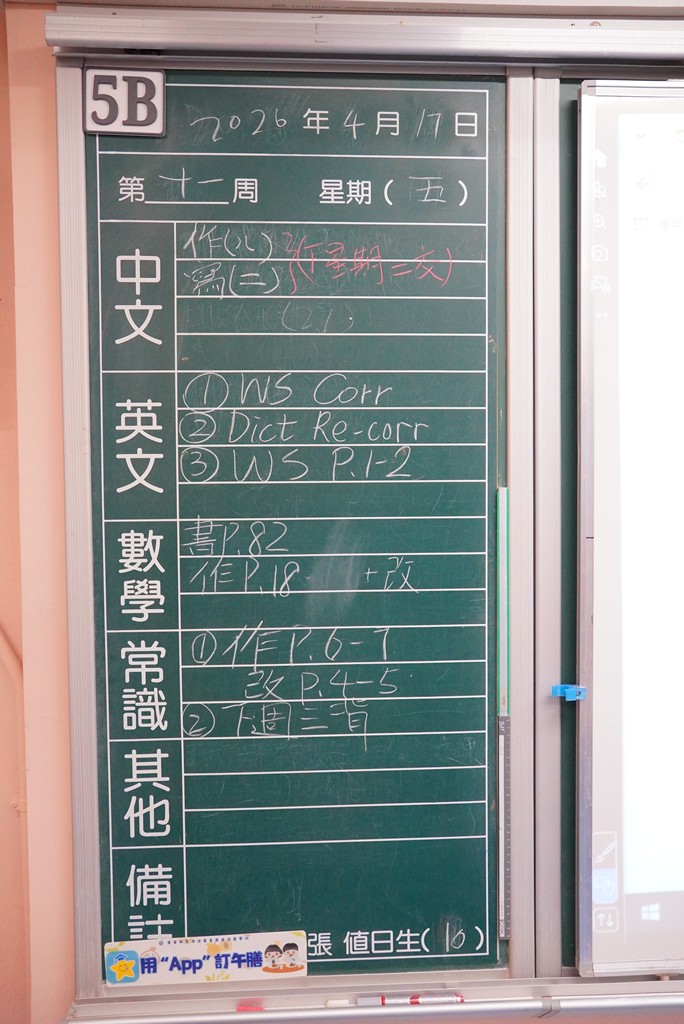 5B
2026年4月17日
第十一周 星期(五)
中文
作(八)
寫(二)
(下星期二交)
(21)
英文
① WS Corr
② Dict Re-corr
③ WS P.1-2
數學
書P.82
作P.18 +改
常識
① 作 P.6-7
改 P.4-5
② 下週三背
其他
備註
張 值日生(16)
用“App”訂午膳